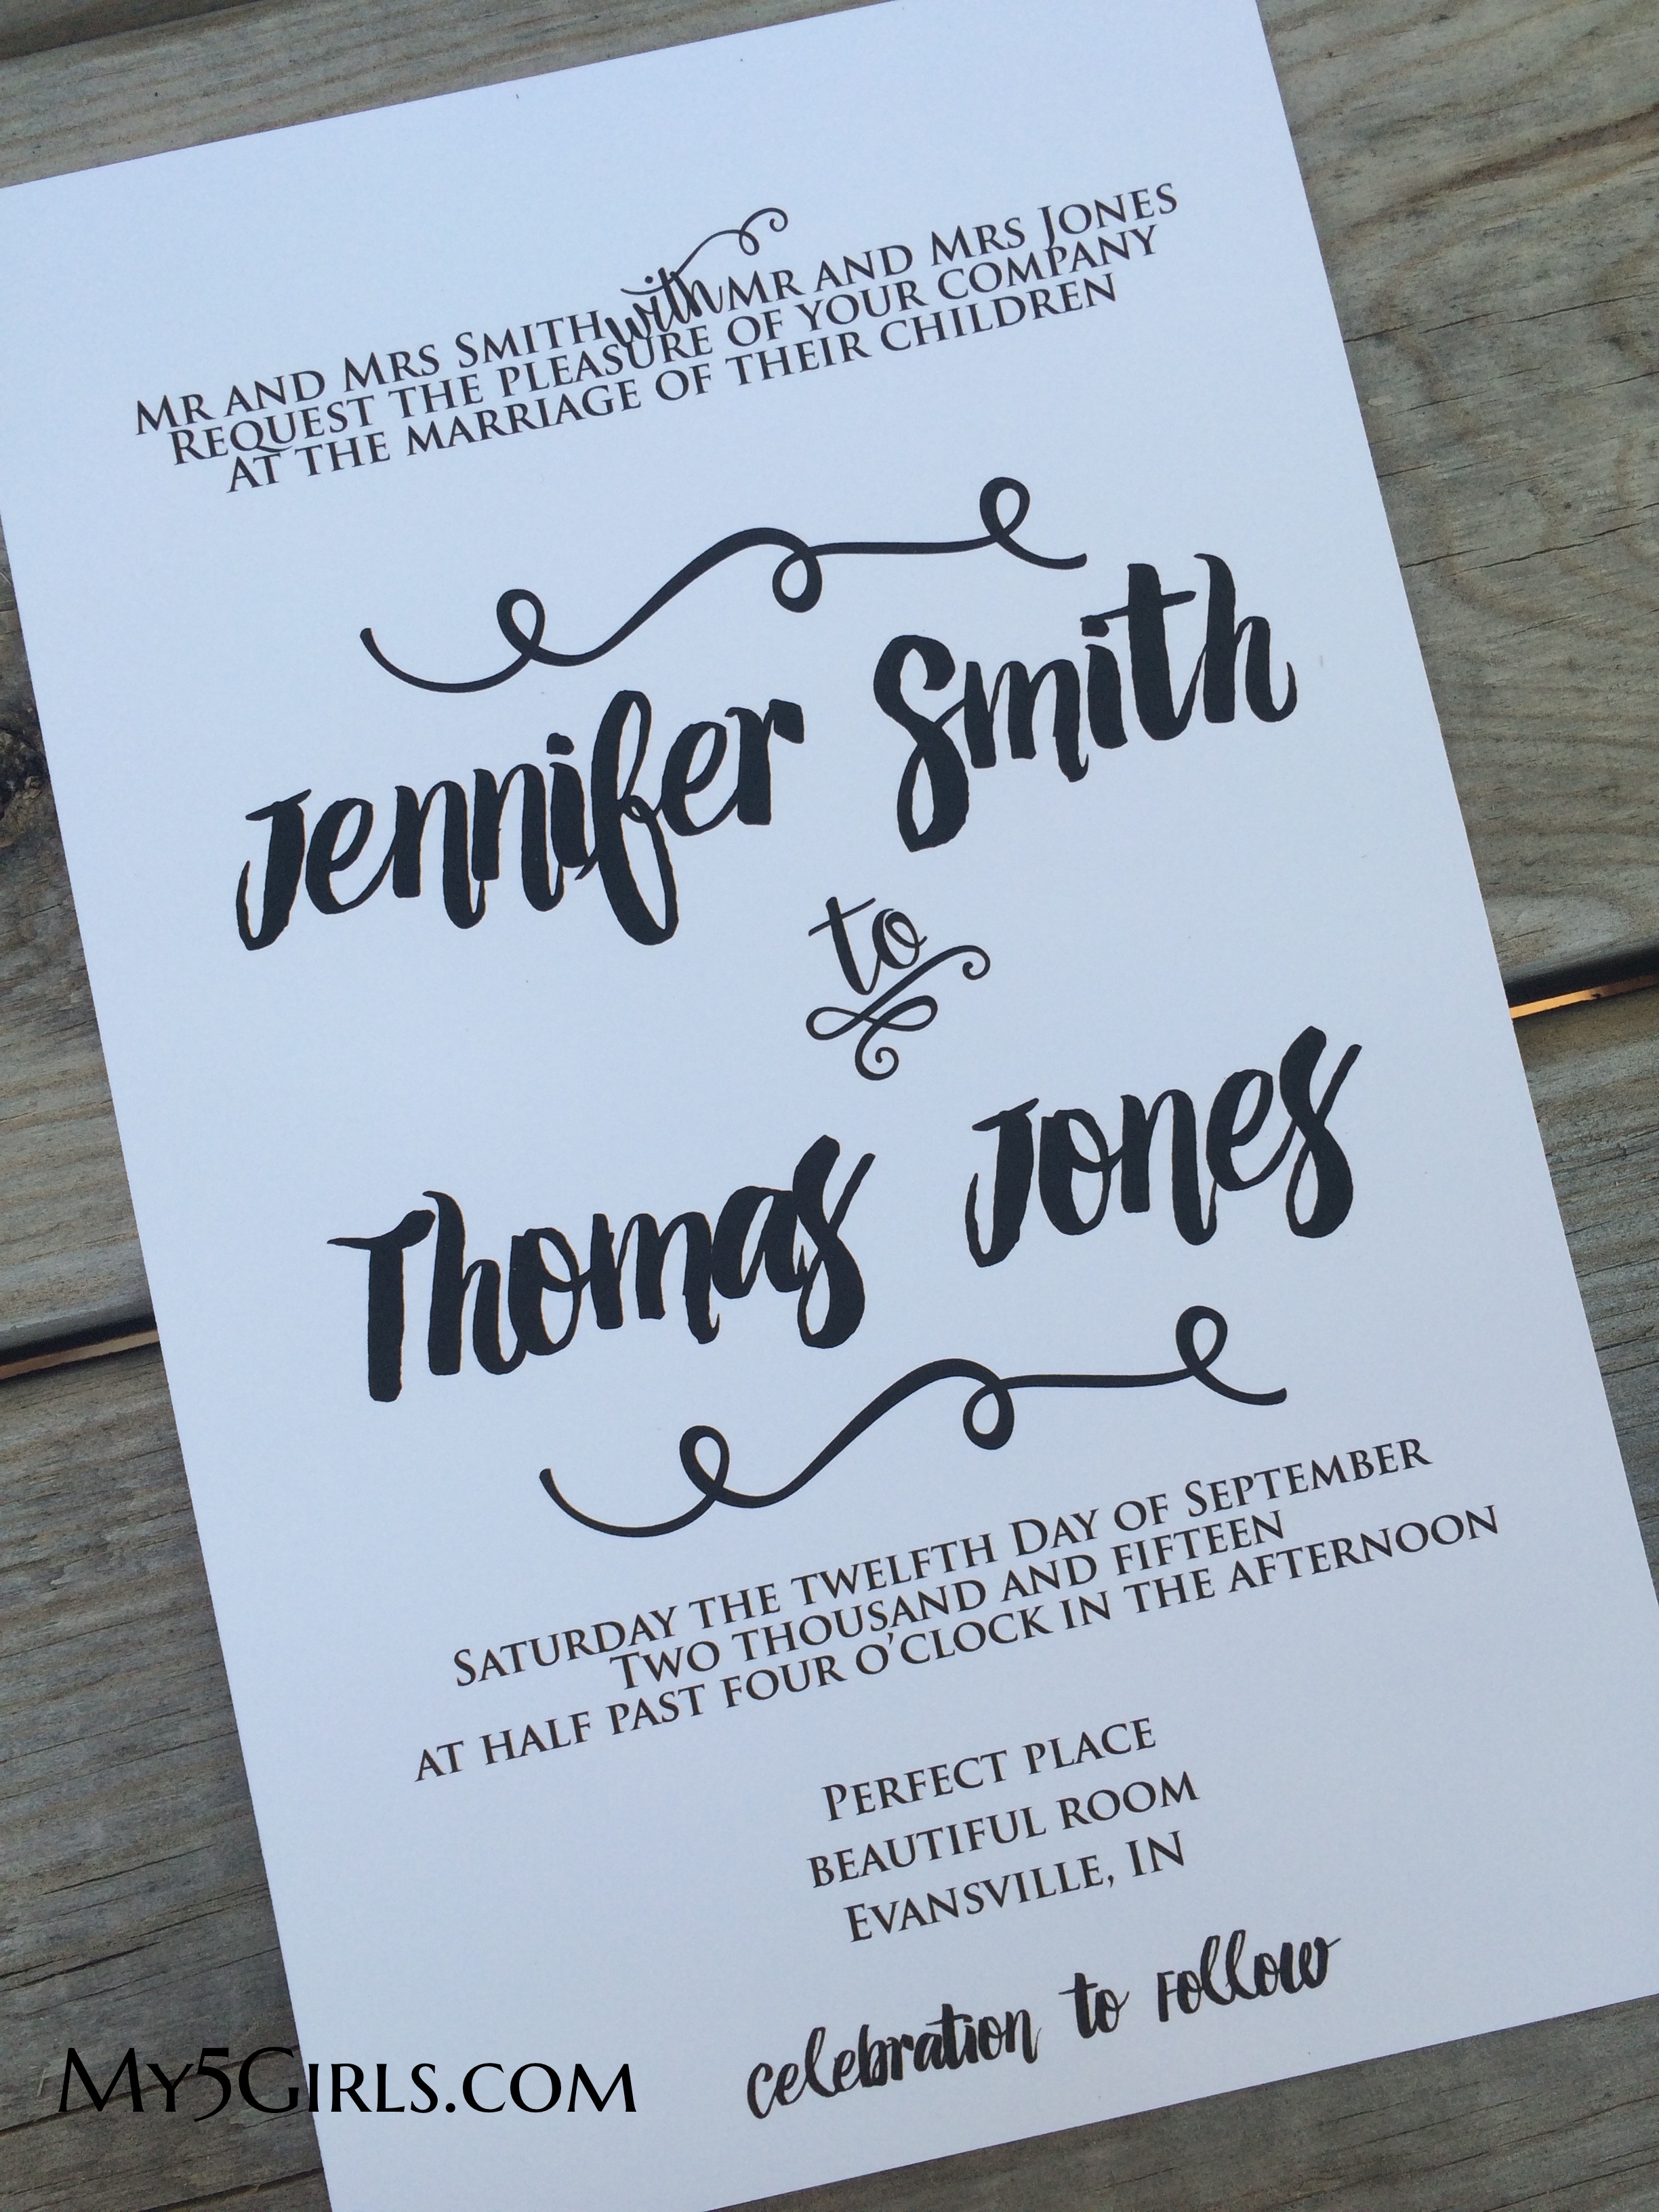 Mr and Mrs Smith with Mr and Mrs Jones
Request the pleasure of your company
at the marriage of their children
Jennifer Smith
to
Thomas Jones
Saturday the twelfth Day of September
Two thousand and fifteen
at half past four o'clock in the afternoon
Perfect place
beautiful room
Evansville, IN
celebration to follow
My5Girls.com